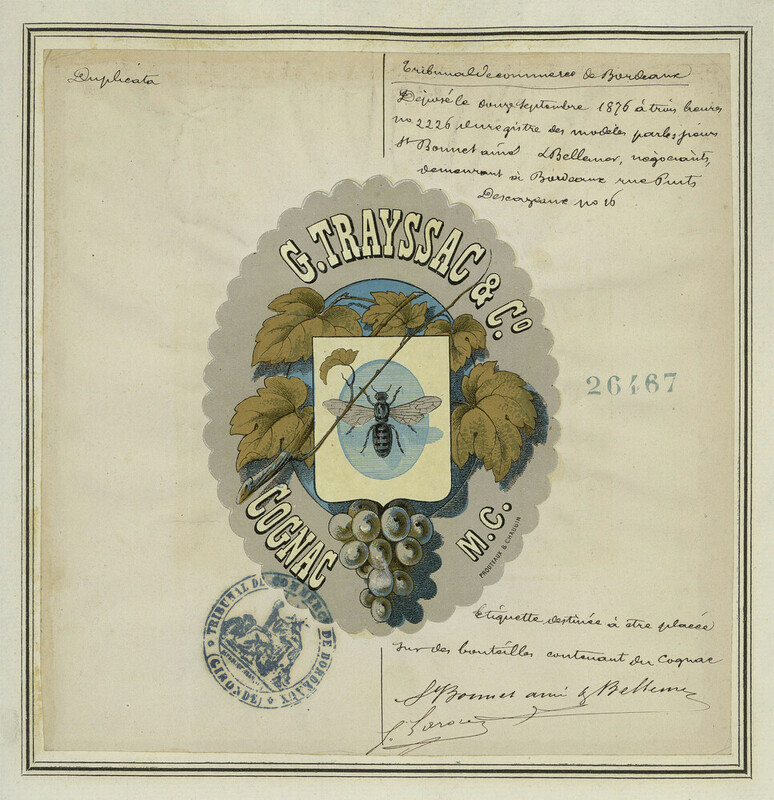 Duplicata
Tribunal de commerce de Bordeaux
Déposé le douze Septembre 1876 à trois heures
no 2226 du registre des modèles par les sieurs
St Bonnet ainé & Bellemer, négociants,
demeurant à Bordeaux rue Puits
Descazeaux no 16
G. TRAYSSAC & Co.
26467
COGNAC
M.C.
PROUTEAUX & CHAUVIN
TRIBUNAL DE COMMERCE DE BORDEAUX
(GIRONDE)
Etiquette destinée à être placée
sur des bouteilles contenant du Cognac
St Bonnet ainé & Bellemer